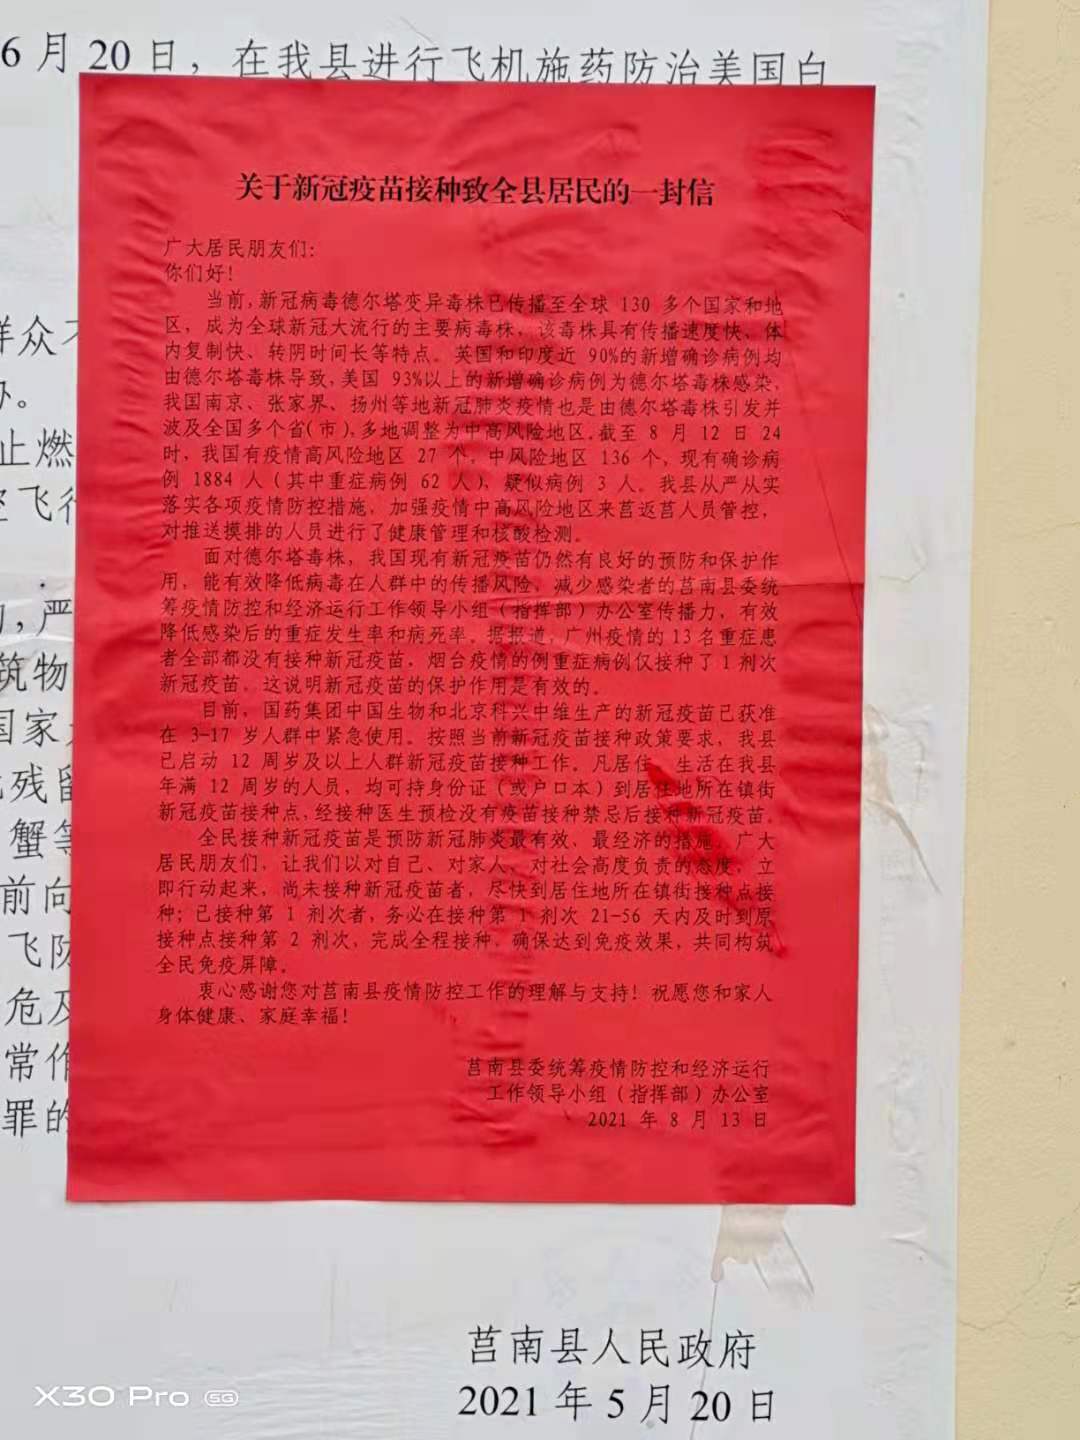 6月20日，在我县进行飞机施药防治美国白
关于新冠疫苗接种致全县居民的一封信
广大居民朋友们：
你们好！
当前，新冠病毒德尔塔变异毒株已传播至全球 130 多个国家和地
区，成为全球新冠大流行的主要病毒株，该毒株具有传播速度快、体
内复制快、转阴时间长等特点。英国和印度近 90%的新增确诊病例均
由德尔塔毒株导致，美国 93%以上的新增确诊病例为德尔塔毒株感染，
我国南京、张家界、扬州等地新冠肺炎疫情也是由德尔塔毒株引发并
波及全国多个省(市)，多地调整为中高风险地区。截至 8 月 12 日 24
时，我国有疫情高风险地区 27 个，中风险地区 136 个，现有确诊病
例 1884 人（其中重症病例 62 人），疑似病例 3 人。我县从严从实
落实各项疫情防控措施，加强疫情中高风险地区来莒返莒人员管控，
对推送摸排的人员进行了健康管理和核酸检测。
面对德尔塔毒株，我国现有新冠疫苗仍然有良好的预防和保护作
用，能有效降低病毒在人群中的传播风险，减少感染者的莒南县委统
筹疫情防控和经济运行工作领导小组（指挥部）办公室传播力，有效
降低感染后的重症发生率和病死率。据报道，广州疫情的13名重症患
者全部都没有接种新冠疫苗，烟台疫情的例重症病例仅接种了1剂次
新冠疫苗。这说明新冠疫苗的保护作用是有效的。
目前，国药集团中国生物和北京科兴中维生产的新冠疫苗已获准
在 3-17 岁人群中紧急使用。按照当前新冠疫苗接种政策要求，我县
已启动 12 周岁及以上人群新冠疫苗接种工作。凡居住、生活在我县
年满 12 周岁的人员，均可持身份证（或户口本）到居住地所在镇街
新冠疫苗接种点，经接种医生预检没有疫苗接种禁忌后接种新冠疫苗。
全民接种新冠疫苗是预防新冠肺炎最有效、最经济的措施。广大
居民朋友们，让我们以对自己、对家人、对社会高度负责的态度，立
即行动起来，尚未接种新冠疫苗者，尽快到居住地所在镇街接种点接
种；已接种第 1 剂次者，务必在接种第 1 剂次 21-56 天内及时到原
接种点接种第 2 剂次，完成全程接种，确保达到免疫效果，共同构筑
全民免疫屏障。
衷心感谢您对莒南县疫情防控工作的理解与支持！祝愿您和家人
身体健康、家庭幸福！
莒南县委统筹疫情防控和经济运行
工作领导小组（指挥部）办公室
2021 年 8 月 13 日
群众
办。
止燃
空飞行
，严
筑物
国家
残留
蟹等
前向
飞防
危及
常作
罪的
莒南县人民政府
2021年5月20日
X30 Pro 5G